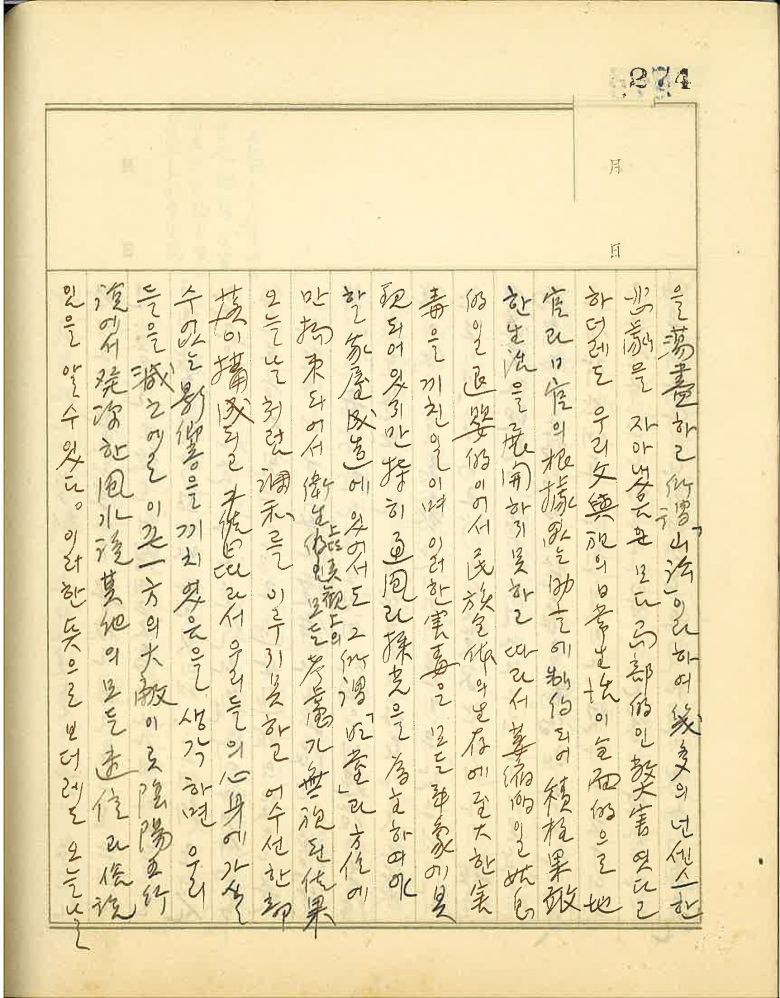 274
月
日
을 蕩盡하고 所謂「山訟」이라하여 幾多의 넌센스한
悲劇을 자아내 모다 局部的인 弊害였다고
하더레도 우리 文與祖의 日常生活이 全面的으로 地
官라 日官의 根據없는 助言에 制約되어 積極果敢
한 生活을 展開하지 못하고 따라서 萎縮的일 姑息
的일 退嬰的이어서 民族全体의 生存에 至大한 害
毒을 끼친 일이며 이러한 害毒은 모든 事象에 具
現되어 있지만 特히 通風과 採光을 為主하여야
할 家屋成造에 있어서도 그 所謂 라 方位에
만 拘束되어서 衛生的 모든 考慮가 無視된 結果
上 美觀上의
오늘날처럼 調和를 이루지 못하고 어수선한 部
落이 構成되고 따라서 우리들의 心身에 가실
수 없는 影響을 끼치였음을 생각하면 우리
들을 滅亡에로 이끈 一方의 大敵이 곳 陰陽五行
說에서 発한 風水說 其他의 모든 迷信과 俗說
임을 알 수 있다。 이러한 뜻으로 보더레도 오늘날